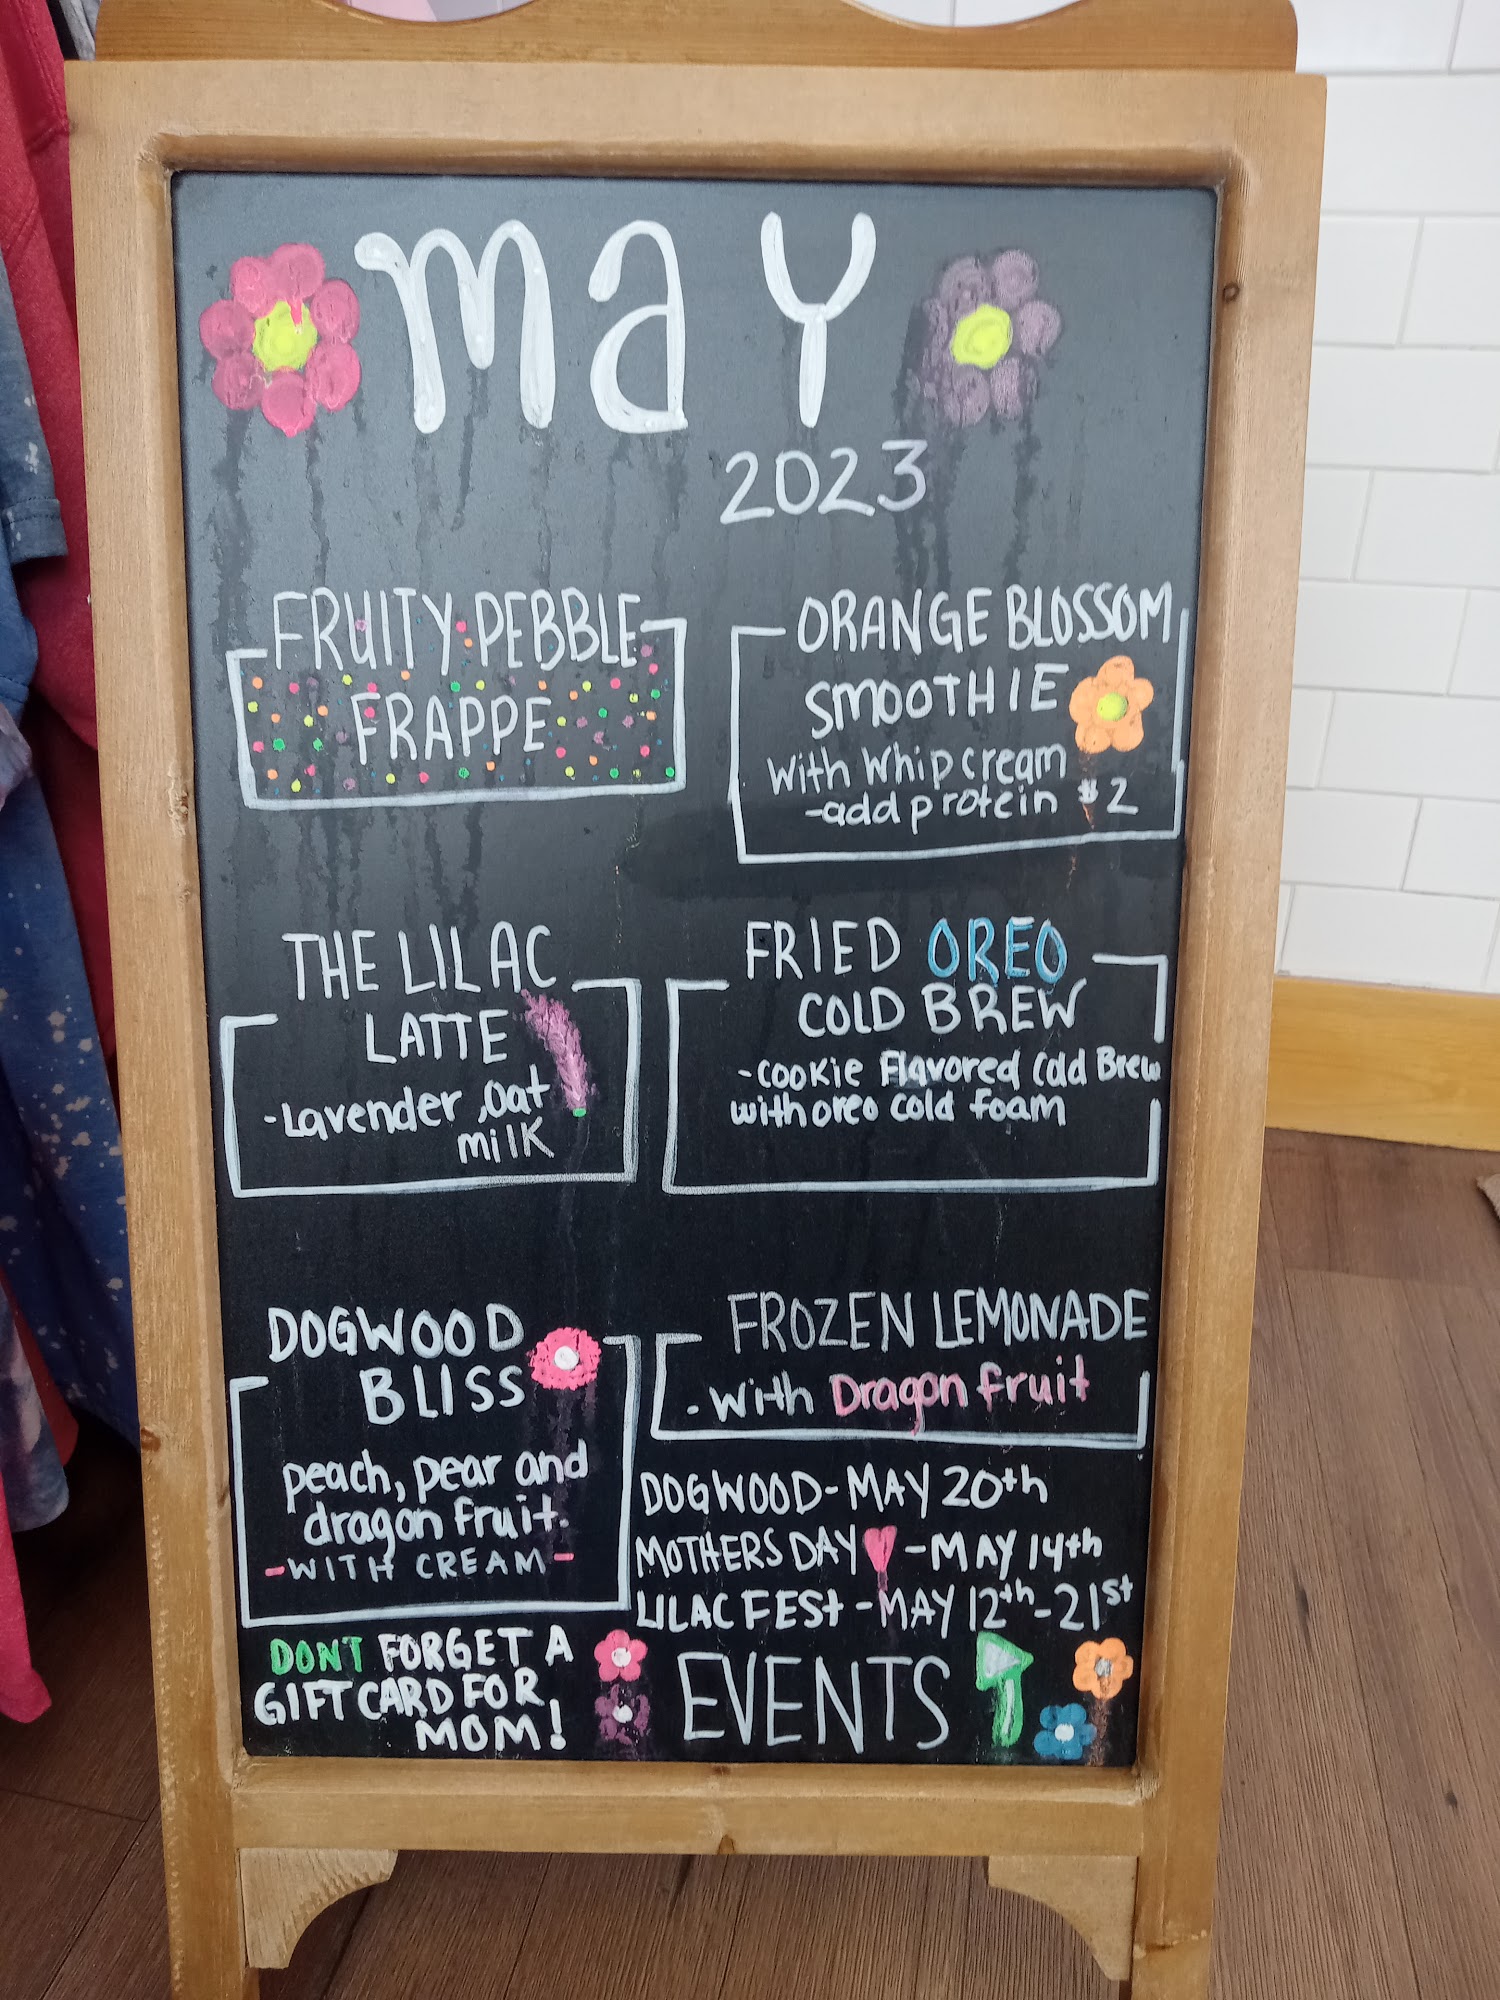 may
2023
FRUITY PEBBLE
FRAPPE
ORANGE BLOSSOM
SMOOTHIE
with whip cream
-add protein $2
THE LILAC
LATTE
-Lavender, oat
milk
FRIED OREO
COLD BREW
-COOKIE Flavored Cold Brew
with oreo cold foam
DOGWOOD
BLISS
peach, pear and
dragon fruit.
-WITH CREAM-
FROZEN LEMONADE
-with Dragon fruit
DOGWOOD-MAY 20th
MOTHERS DAY -MAY 14th
LILAC FEST -MAY 12th-21st
EVENTS
DONT FORGET A
GIFT CARD FOR
MOM!